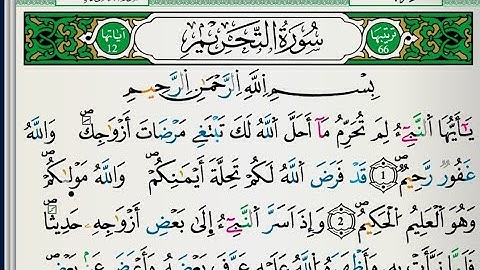 ترتيبها 66 سُورَةُ التَّحْرِيمِ آياتها 12
بِسْمِ اللَّهِ الرَّحْمَٰنِ الرَّحِيمِ
يَا أَيُّهَا النَّبِيءُ لِمَ تُحَرِّمُ مَا أَحَلَّ اللَّهُ لَكَ تَبْتَغِي مَرْضَاتَ أَزْوَاجِكَ وَاللَّهُ
غَفُورٌ رَحِيمٌ 1 قَدْ فَرَضَ اللَّهُ لَكُمْ تَحِلَّةَ أَيْمَانِكُمْ وَاللَّهُ مَوْلَاكُمْ
وَهُوَ الْعَلِيمُ الْحَكِيمُ 2 وَإِذْ أَسَرَّ النَّبِيءُ إِلَى بَعْضِ أَزْوَاجِهِ حَدِيثًا
فَلَمَّا نَبَّأَتْ بِهِ وَأَظْهَرَهُ اللَّهُ عَلَيْهِ عَرَّفَ بَعْضَهُ وَأَعْرَضَ عَنْ بَعْضٍ